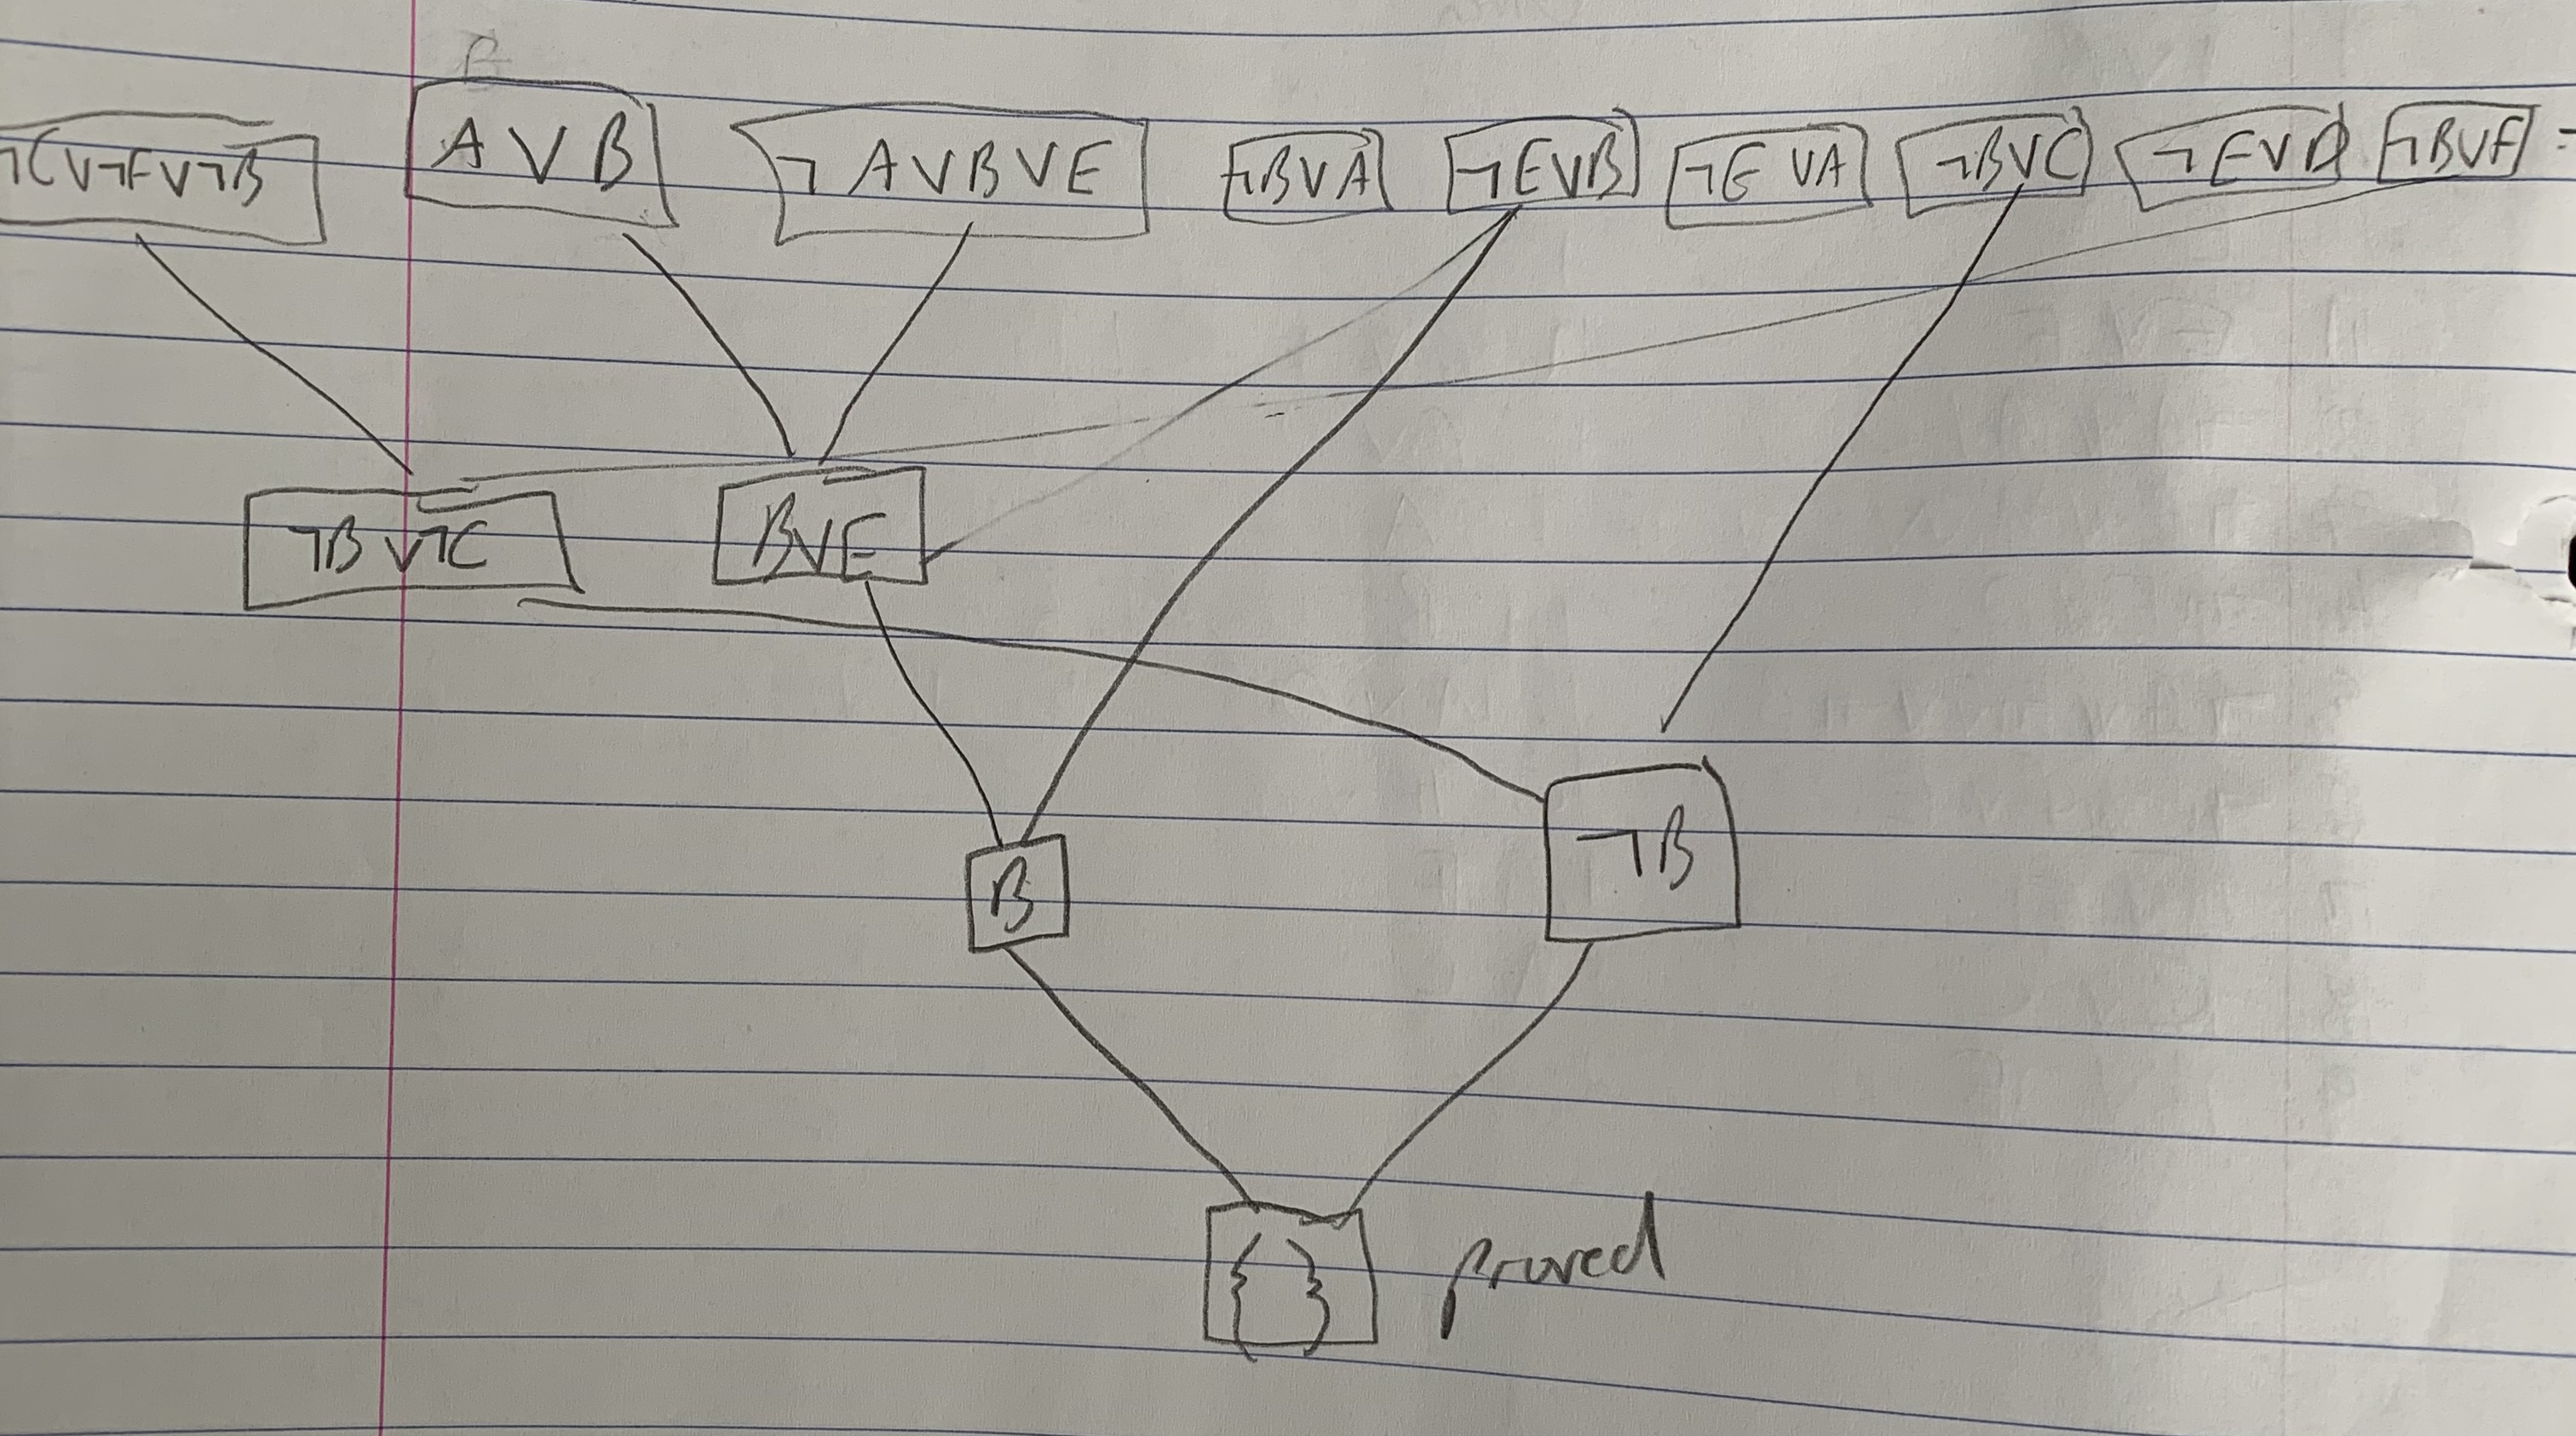 ¬C∨¬F∨¬B A∨B ¬A∨B∨E ¬B∨A ¬E∨B ¬E∨A ¬B∨C ¬E∨D ¬B∨F
¬B∨¬C B∨E
B ¬B
{} proved